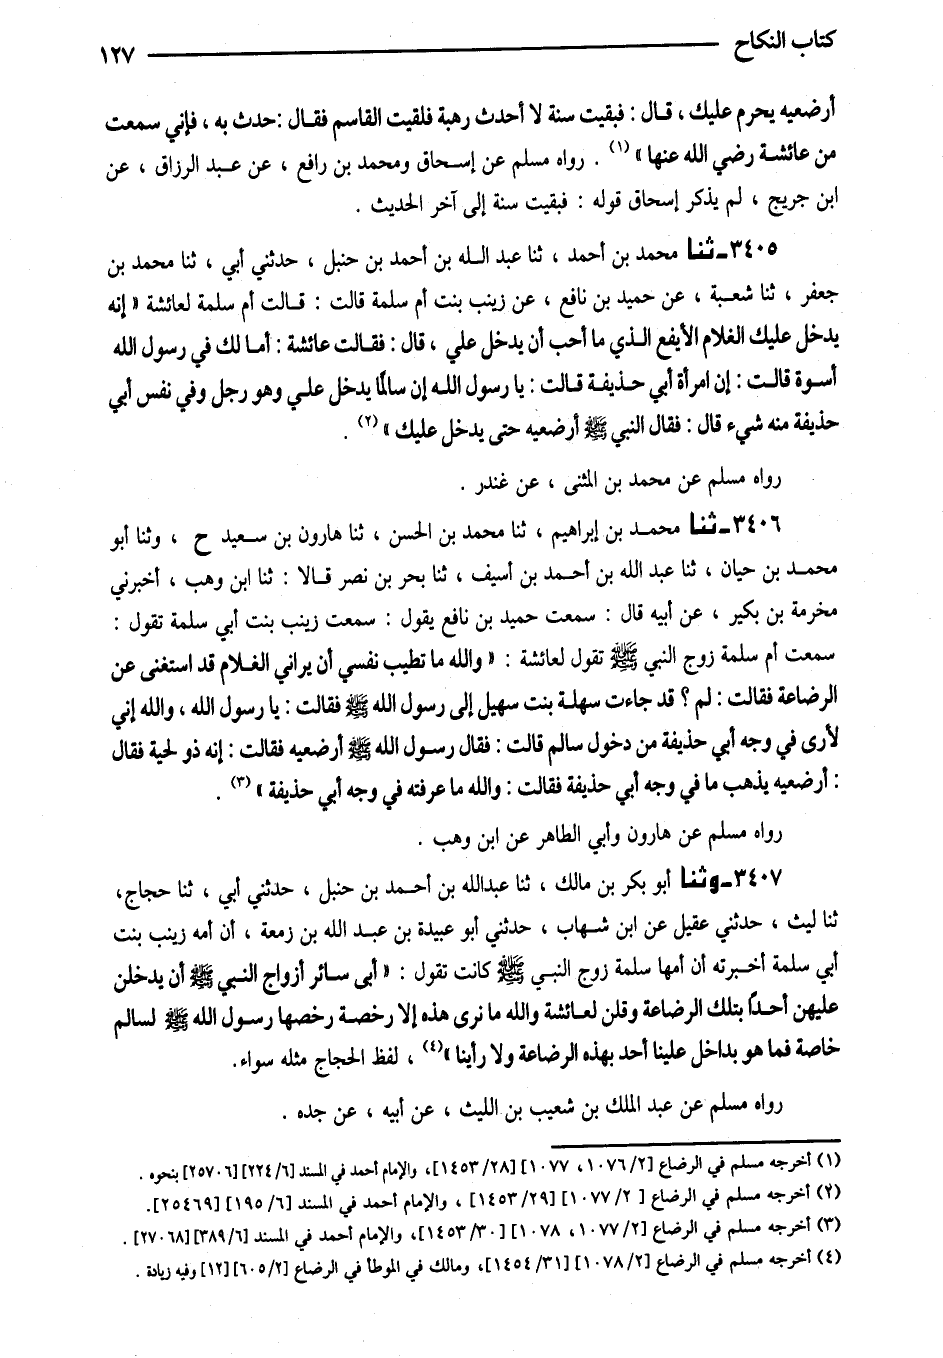 كتاب النكاح ١٢٧
أرضعيه يحرم عليك ، قال : فبقيت سنة لا أحدث رهبة فلقيت القاسم فقال :حدث به ، فإني سمعت
من عائشة رضي الله عنها » (١) . رواه مسلم عن إسحاق ومحمد بن رافع ، عن عبد الرزاق ، عن
ابن جريج ، لم يذكر إسحاق قوله : فبقيت سنة إلى آخر الحديث .
٣٤٠٥ـ ثنا محمد بن أحمد ، ثنا عبد الله بن أحمد بن حنبل ، حدثني أبي ، ثنا محمد بن
جعفر ، ثنا شعبة ، عن حميد بن نافع ، عن زينب بنت أم سلمة قالت : قالت أم سلمة لعائشة « إنه
يدخل عليك الغلام الأيفع الذي ما أحب أن يدخل علي ، قال : فقالت عائشة : أما لك في رسول الله
أسوة قالت : إن امرأة أبي حذيفة قالت : يا رسول الله إن سالمًا يدخل علي وهو رجل وفي نفس أبي
حذيفة منه شيء قال : فقال النبي ﷺ أرضعيه حتى يدخل عليك » (٢) .
رواه مسلم عن محمد بن المثنى ، عن غندر .
٣٤٠٦ـ ثنا محمد بن إبراهيم ، ثنا محمد بن الحسن ، ثنا هارون بن سعيد ح ، وثنا أبو
محمد بن حيان ، ثنا عبد الله بن أحمد بن أسيف ، ثنا بحر بن نصر قالا : ثنا ابن وهب ، أخبرني
مخرمة بن بكير ، عن أبيه قال : سمعت حميد بن نافع يقول : سمعت زينب بنت أبي سلمة تقول :
سمعت أم سلمة زوج النبي ﷺ تقول لعائشة : « والله ما تطيب نفسي أن يراني الغلام قد استغنى عن
الرضاعة فقالت : لم ؟ قد جاءت سهلة بنت سهيل إلى رسول الله ﷺ فقالت : يا رسول الله ، والله إني
لأرى في وجه أبي حذيفة من دخول سالم قالت : فقال رسول الله ﷺ أرضعيه فقالت : إنه ذو لحية فقال
: أرضعيه يذهب ما في وجه أبي حذيفة فقالت : والله ما عرفته في وجه أبي حذيفة » (٣) .
رواه مسلم عن هارون وأبي الطاهر عن ابن وهب .
٣٤٠٧ـ وثنا أبو بكر بن مالك ، ثنا عبدالله بن أحمد بن حنبل ، حدثني أبي ، ثنا حجاج،
ثنا ليث ، حدثني عقيل عن ابن شهاب ، حدثني أبو عبيدة بن عبد الله بن زمعة ، أن أمه زينب بنت
أبي سلمة أخبرته أن أمها سلمة زوج النبي ﷺ كانت تقول : « أبى سائر أزواج النبي ﷺ أن يدخلن
عليهن أحدًا بتلك الرضاعة وقلن لعائشة والله ما نرى هذه إلا رخصة رخصها رسول الله ﷺ لسالم
خاصة فما هو بداخل علينا أحد بهذه الرضاعة ولا رأينا »(٤) ، لفظ الحجاج مثله سواء.
رواه مسلم عن عبد الملك بن شعيب بن الليث ، عن أبيه ، عن جده .
(١) أخرجه مسلم في الرضاع [٢/ ١٠٧٦، ١٠٧٧] [٢٨/ ١٤٥٣]، والإمام أحمد في المسند [٦/ ٢٢٤] [٢٥٧٠٦] بنحوه .
(٢) أخرجه مسلم في الرضاع [ ٢/ ١٠٧٧] [٢٩/ ١٤٥٣] ، والإمام أحمد في المسند [٦/ ١٩٥] [٢٥٤٦٩].
(٣) أخرجه مسلم في الرضاع [٢/ ١٠٧٧، ١٠٧٨] [٣٠/ ١٤٥٣]، والإمام أحمد في المسند [٦/ ٣٨٩] [٢٧٠٦٨] .
(٤) أخرجه مسلم في الرضاع [٢/ ١٠٧٨] [٣١/ ١٤٥٤]، ومالك في الموطأ في الرضاع [٢/ ٦٠٥] [١٢] وفيه زيادة .